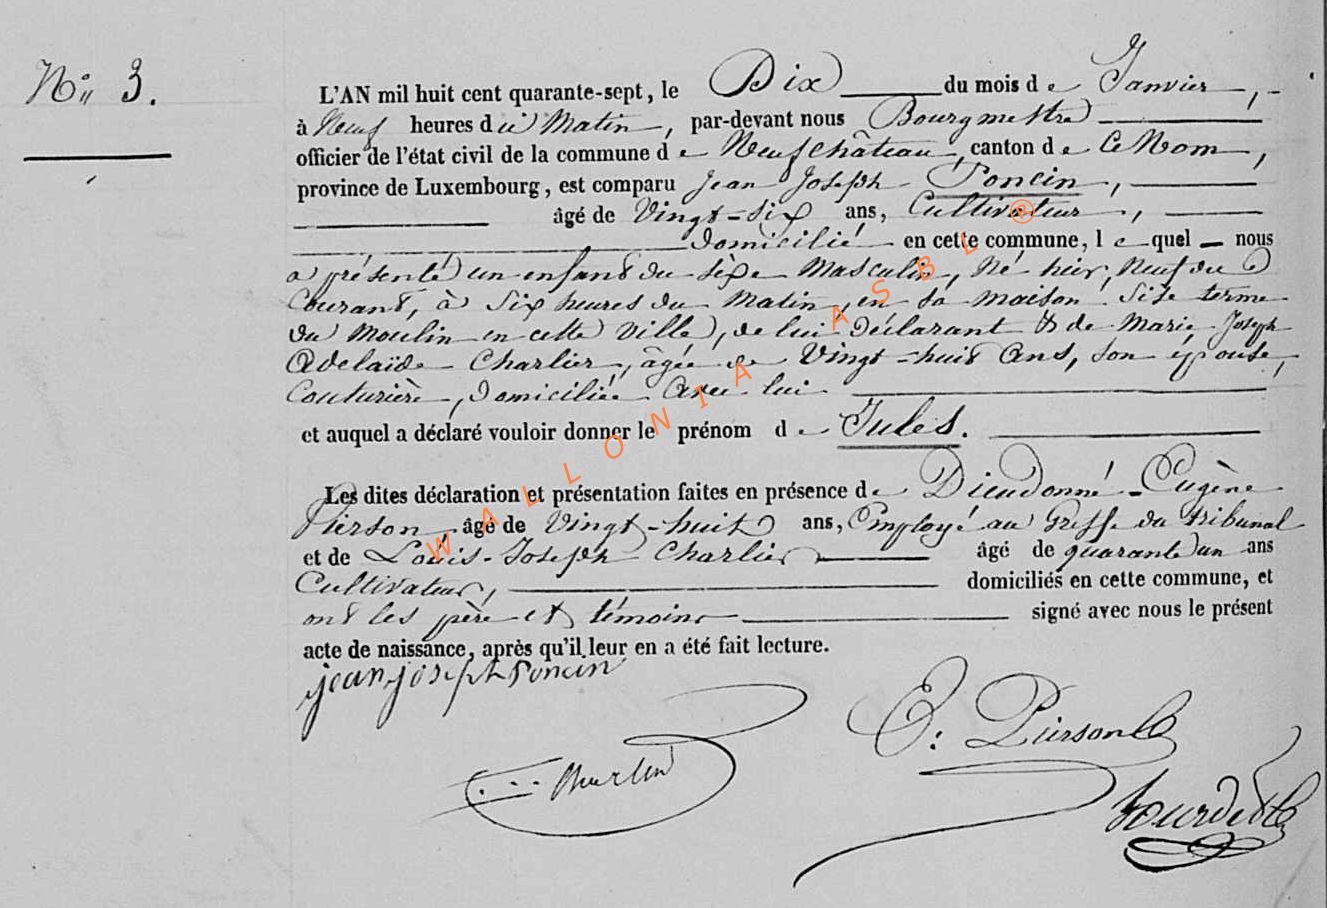 N° 3.
L'AN mil huit cent quarante-sept, le Dix du mois de Janvier,
à Neuf heures du Matin, par-devant nous Bourgmestre
officier de l'état civil de la commune de Neufchâteau, canton de Ce Nom,
province de Luxembourg, est comparu Jean Joseph Poncin,
âgé de Vingt-six ans, Cultivateur,
Domicilié en cette commune, lequel nous
a présenté un enfant du sèxe Masculin, Né hier, Neuf du
Courant, à Six heures du Matin, en sa maison Sise terme
du Moulin en cette Ville, de lui Déclarant & de Marie Joseph
Adelaïde Charlier, âgée de Vingt-huit Ans, son épouse,
Couturière, Domiciliée Avec lui
et auquel a déclaré vouloir donner le prénom de Jules.
Les dites déclaration et présentation faites en présence de Dieudonné-Eugène
Pierson, âgé de Vingt-huit ans, Employé au Greffe du tribunal
et de Louis-Joseph Charlier âgé de quarante un ans
Cultivateur, domiciliés en cette commune, et
ont les père et témoins signé avec nous le présent
acte de naissance, après qu'il leur en a été fait lecture.
jean joseph Poncin
E: Pierson
WALLONIA ASBL ®